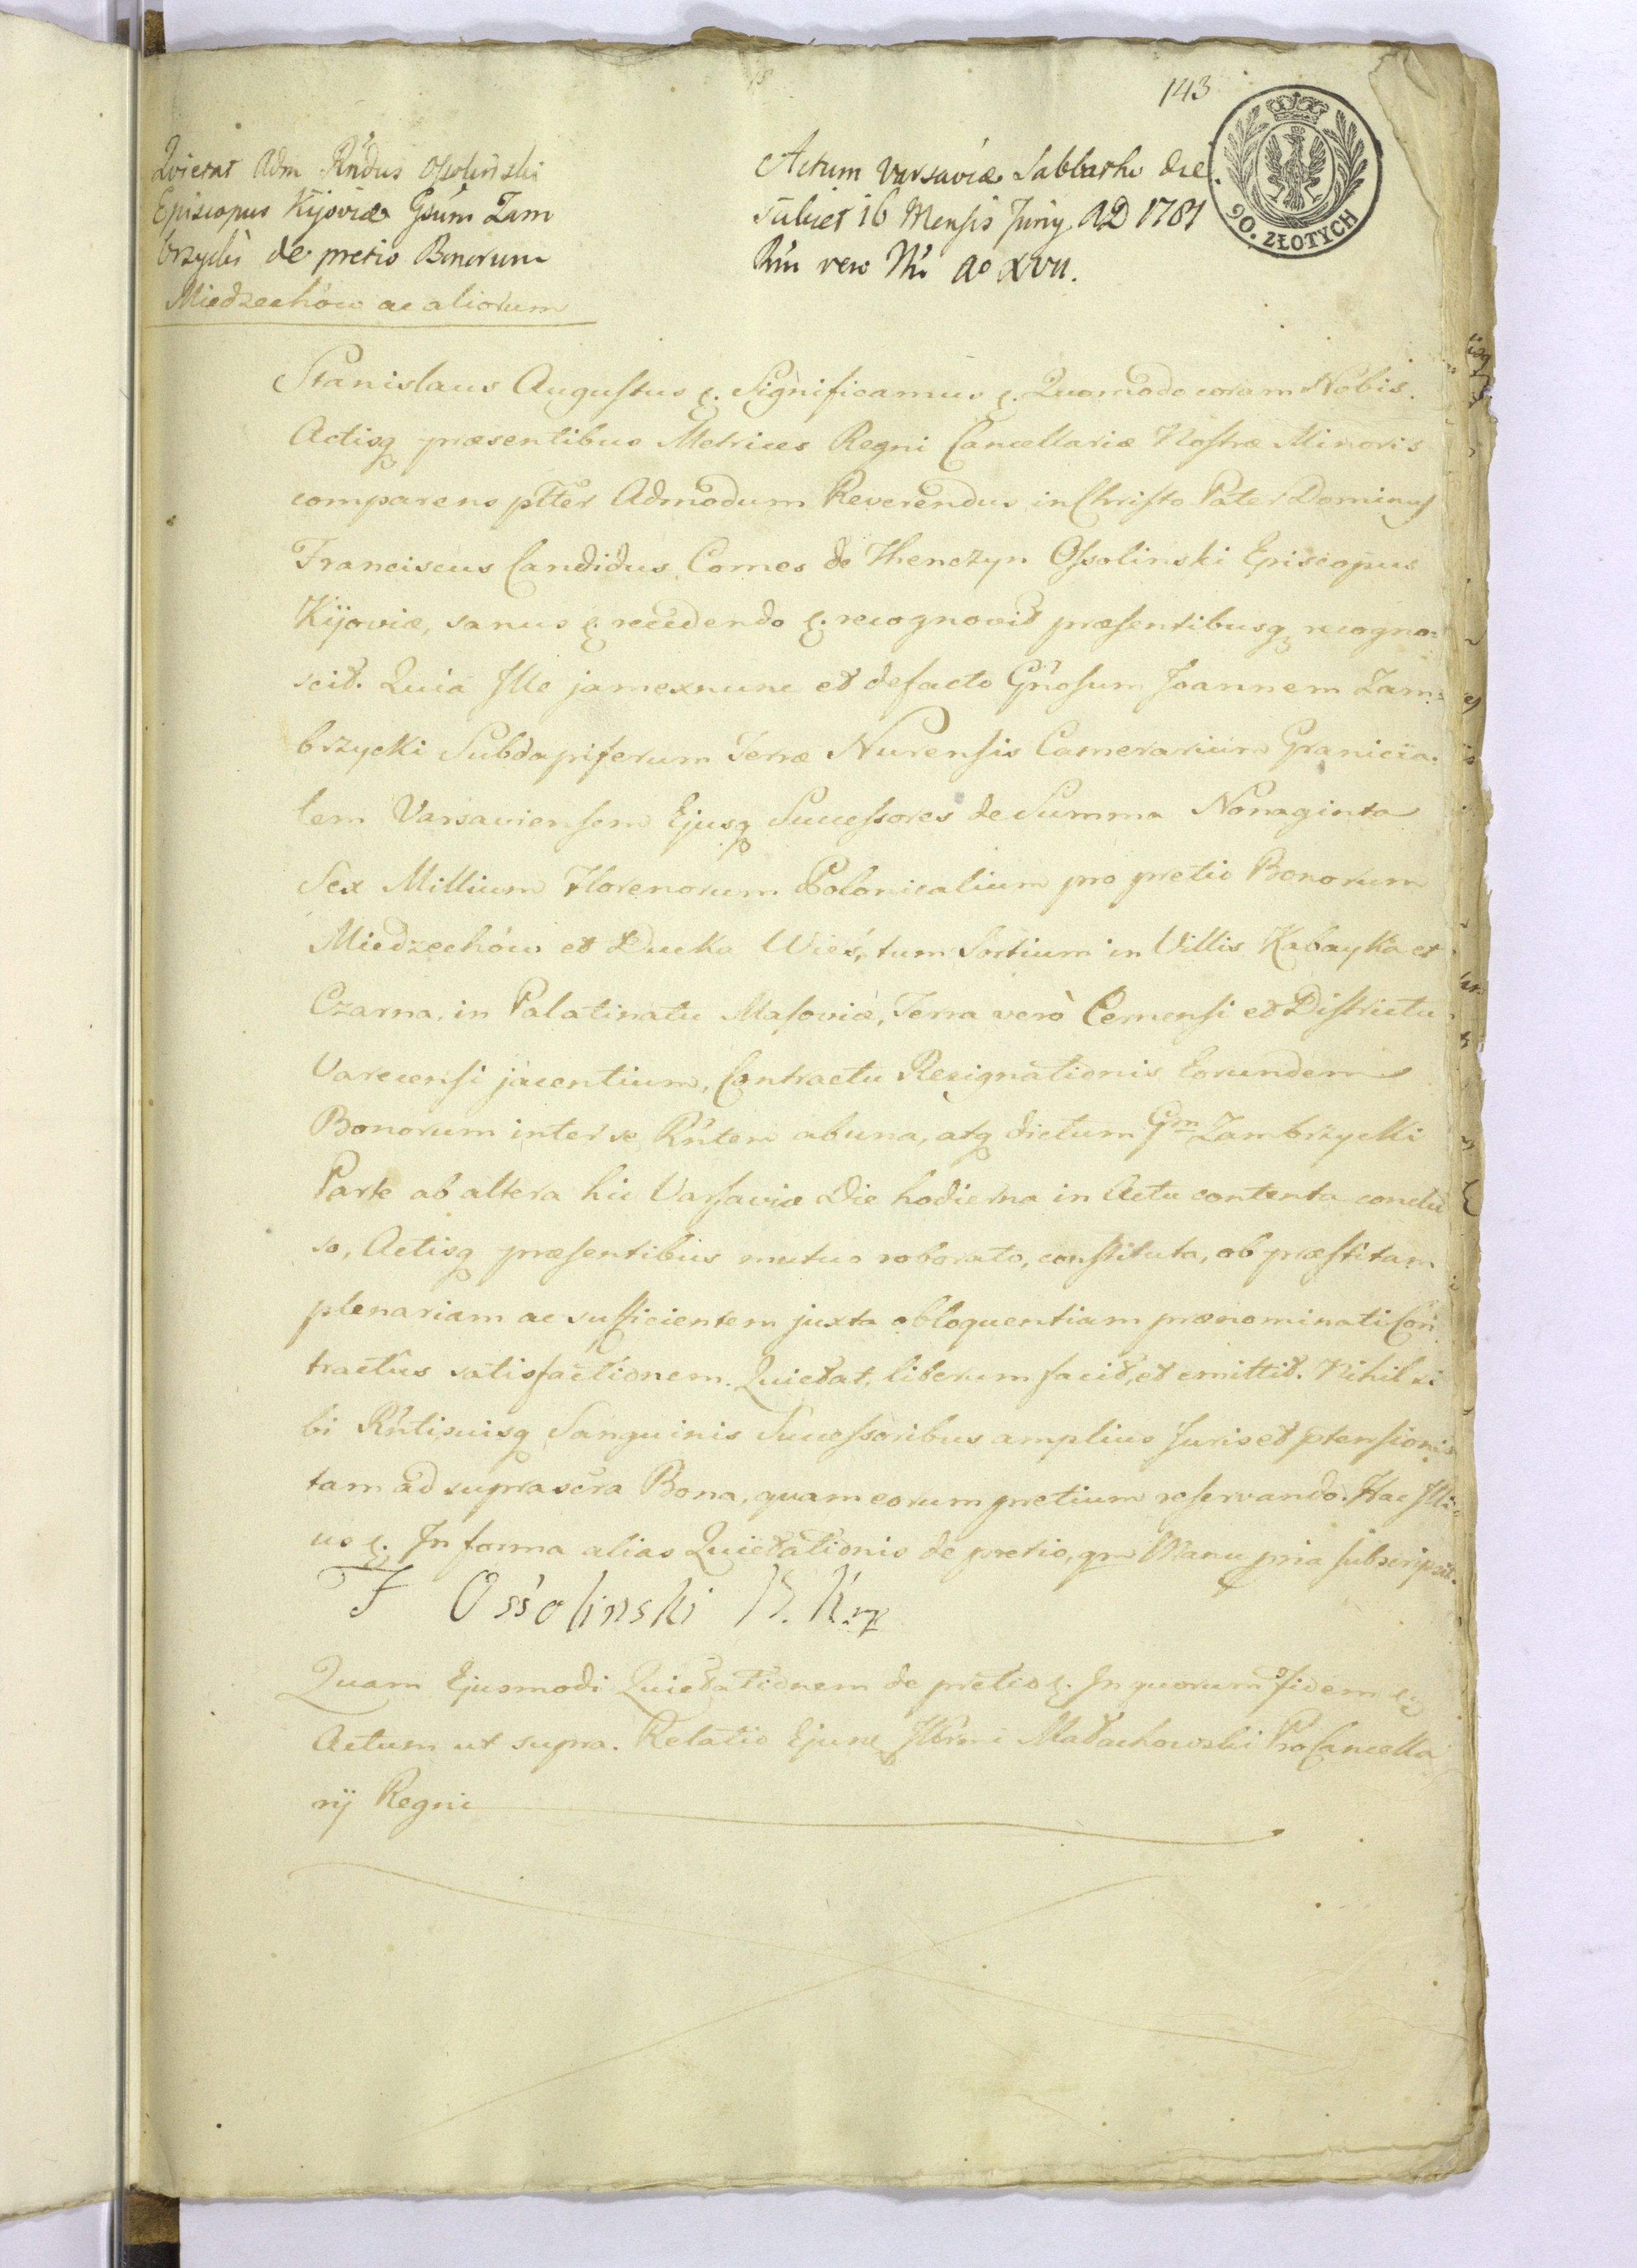 143
90. ZŁOTYCH
Qvietat Adm Rńdus Ossoliński
Episcopus Kijoviæ Gsum Zam
brzycki de pretio Bonorum
Miedzechów ac aliorum
Actum Varsaviæ Sabbatho die
scilicet 16 Mensis Junij AD 1781
Rni vero Nri ao XVII.
Stanislaus Augustus &. Significamus &. Quomodo coram Nobis
Actisq præsentibus Metrices Regni Cancellariæ Nostræ Minoris
comparens pltter Admodum Reverendus in Christo Pater Dominus
Franciscus Candidus Comes de Thenczyn Ossolinski Episcopus
Kijoviæ, sanus & recedendo &. recognovit præsentibusq recogno=
scit. Quia Ille jam exnunc et defacto Gnosum Joannem Zam=
brzycki Subdapiferum Terræ Nurensis Camerarium Granicia=
lem Varsaviensem Ejusq Successores de Summa Nonaginta
Sex Millium Florenorum Polonicalium pro pretio Bonorum
Miedzechów et Ducka Wieś, tum Sortium in Villis Kabayka et
Czarna, in Palatinatu Masoviæ, Terra verò Cernensi et Districtu
Varecensi jacentium, Contractu Resignationis Eorundem
Bonorum inter se Rńtem ab una, atq dictum Gm Zambrzycki
Parte ab altera hic Varsaviæ Die hodierna in Actu contenta conclu
so, Actisq præsentibus mutuo roborato, constituta, ob præstitam
plenariam ac sufficientem juxta obloquentiam prænominati Con
tractus satisfactionem. Quietat, liberum facit, et emittit. Nihil si
bi Rńti suisq Sanguinis Successoribus amplius Juris et ptensionis
tam ad suprascra Bona, quam eorum pretium reservando. Hac Illi=
us &. In forma alias Quietationis de pretio, qm Manu pria subscripsit.
F Ossolinski B. K. m
Quam Ejusmodi Quietationem de pretio &. In quorum fidem &
Actum ut supra. Relatio Ejusq Illrmi Małachowski ProCancella
rij Regni